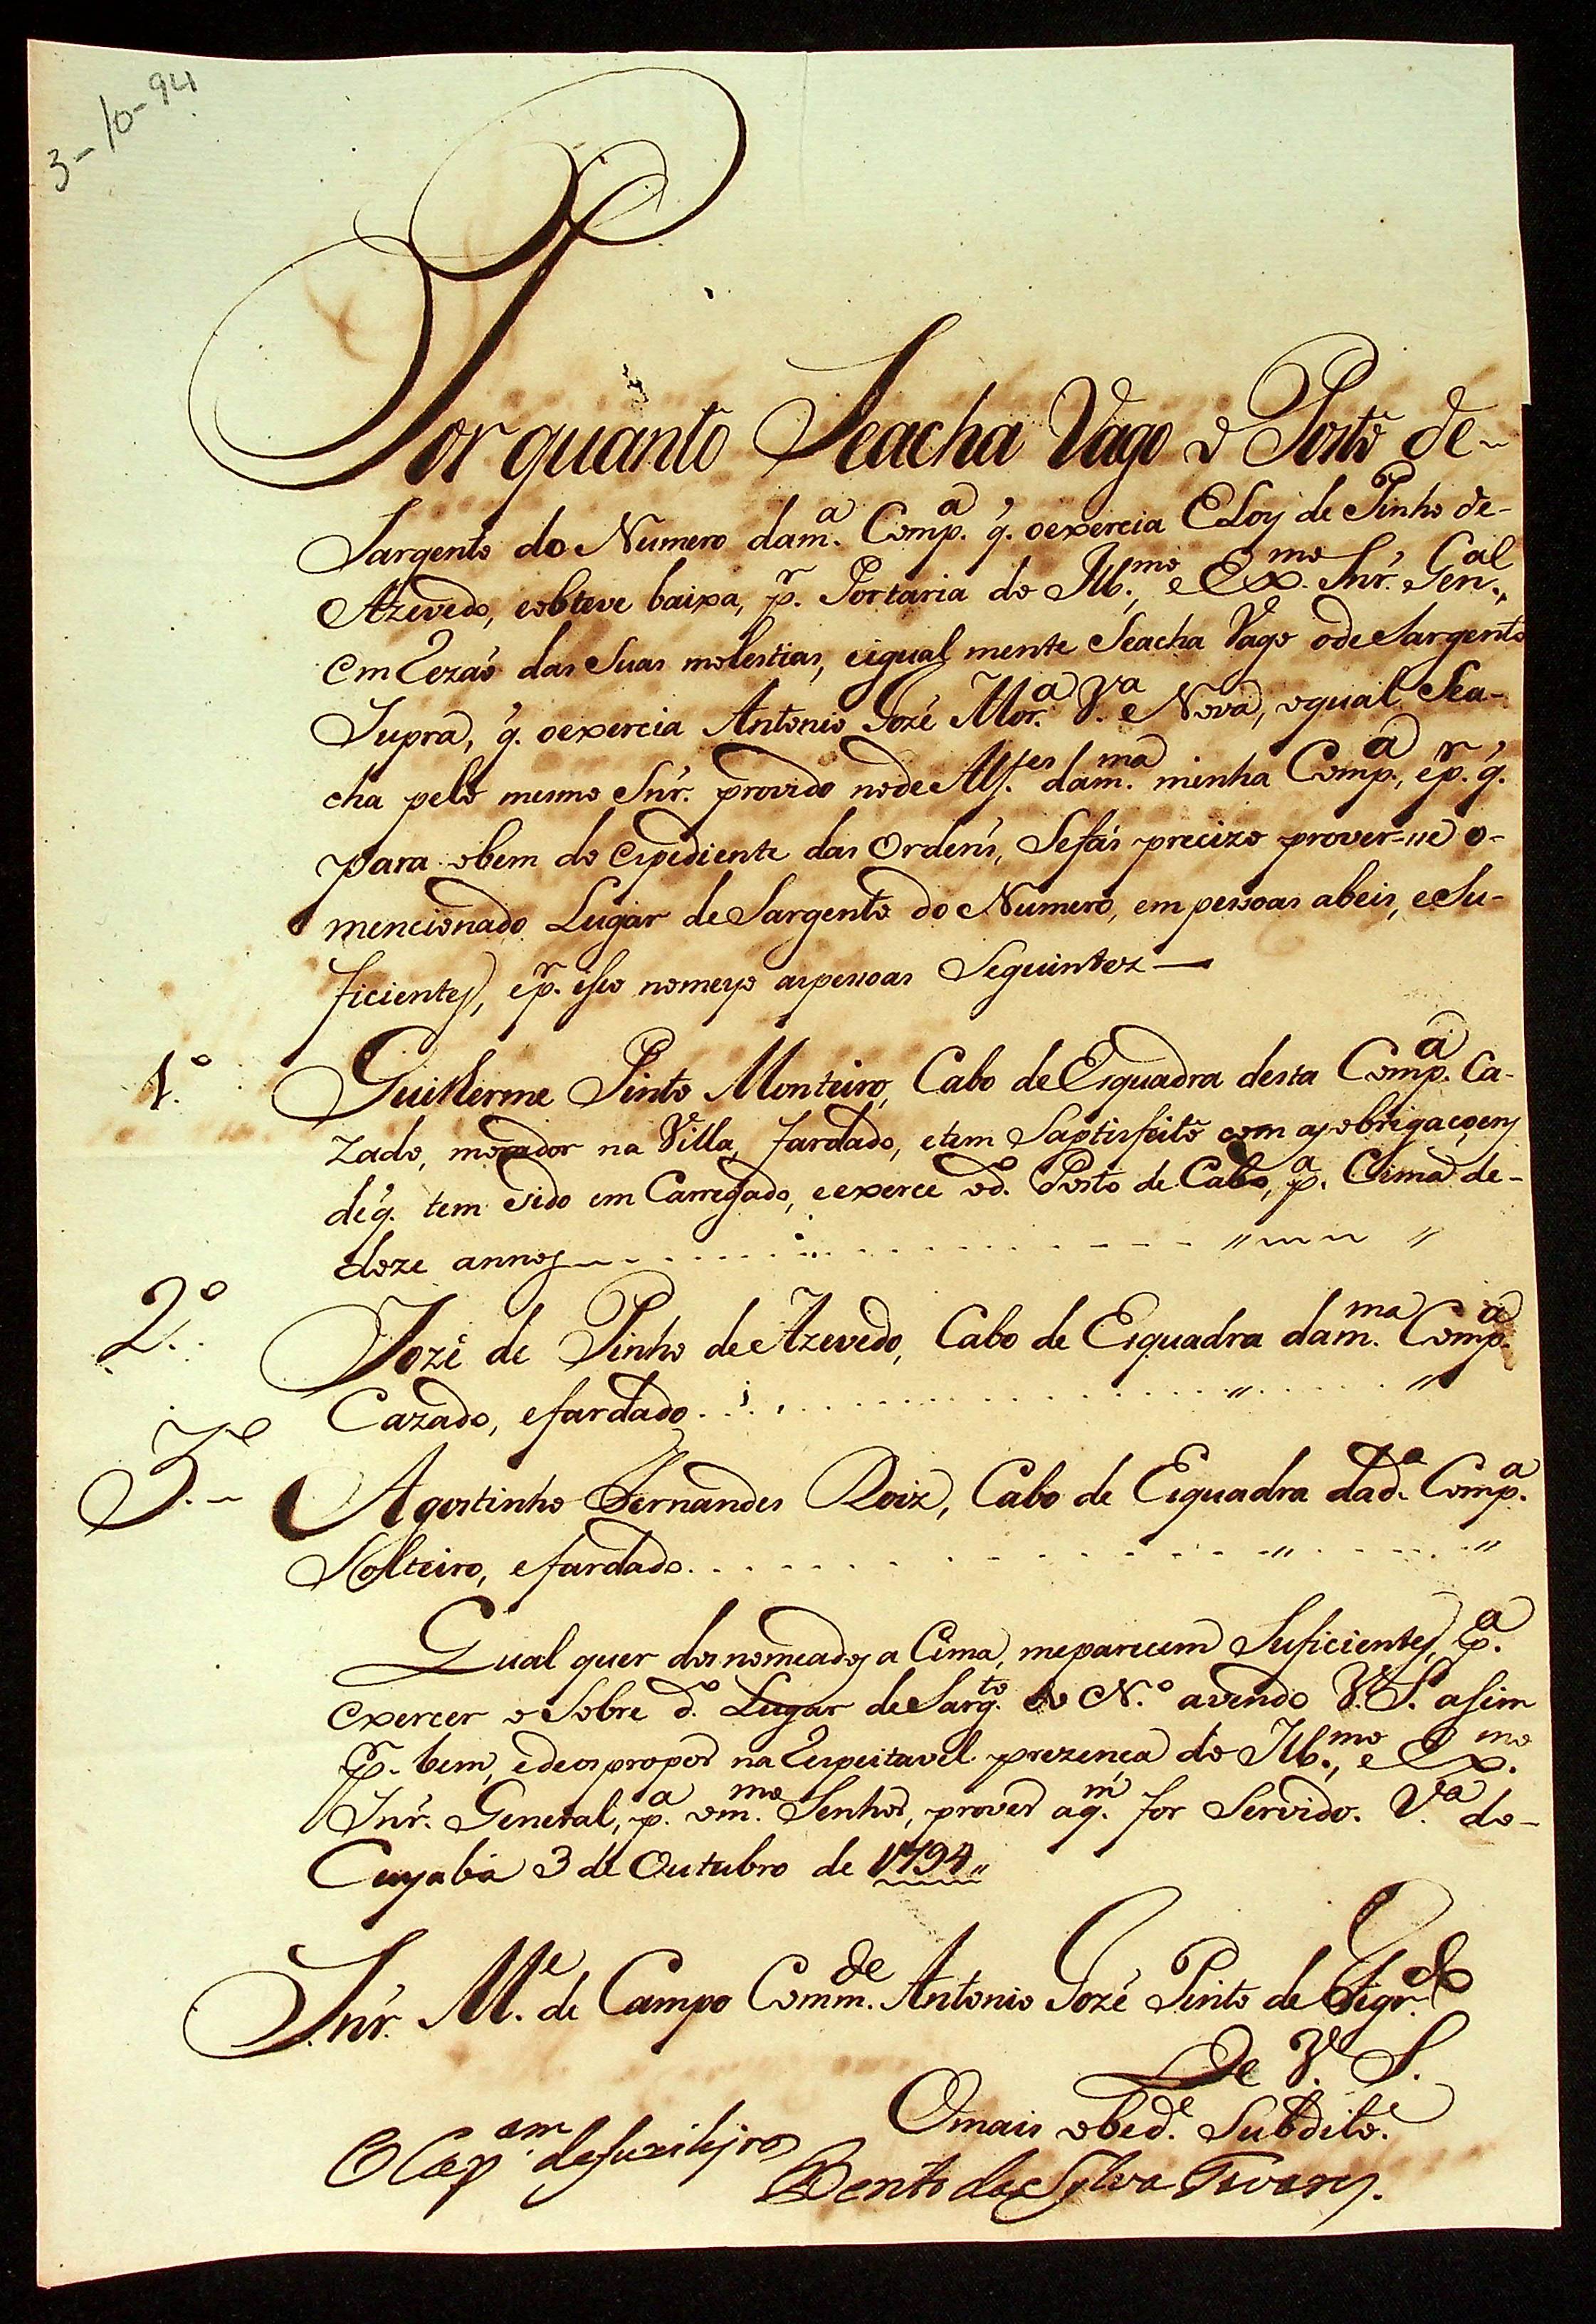 3-10-94
Por quanto Seacha Vago o Posto de-
Sargento do Numero dam.ª Comp.ª q. oexercia Eloy de Pinho de-
Azevedo, eobteve baixa, p.r Portaria do Ill.mo, e Ex.mo Snr. Gen.cal,
em Rezaõ das Suas molestias, eigual mente Seacha Vago ode Sargento
Supra, q. oexercia Antonio Jozé Mor.ª V.ª Nova, oqual Sea-
cha pelo mesmo Snr. provido node Alf.es dam.ma minha Comp.ª, ep.r q.
para obem do expediente das Ordens, Sefás precizo prover-se o-
mencionado Lugar de Sargento do Numero, em pessoas abeis, eSu-
ficientes, ep.r isso nomeyo aspessoas Seguintez —
1.º Guilherme Pinto Monteiro, Cabo de Esquadra desta Comp.ª Ca-
zado, morador na Villa, fardado, etem Saptisfeito com as obrigaçoens
deq. tem Sido em Carregado, eexerce od.º Posto de Cabo, p.ª Cima de-
doze annos
2.º Jozé de Pinho de Azevedo, Cabo de Esquadra dam.ma Comp.ª
Cazado, efardado
3.º Agostinho Fernandes Roiz, Cabo de Esquadra dad.ª Comp.ª
Solteiro, efardado
Qual quer dos nomeados a Cima, meparecem Suficientes, p.ª
exercer o Sobre d.º Lugar de Sarg.to do N.º avendo V. S. asim
p.r bem, edeos propor na Respeitavel prezença do Ill.mo, e Ex.mo
Snr. General, p.ª om.mo Senhor, prover aq.m for Servido. V.ª do-
Cuyabá 3 de Outubro de 1794
Snr. M.e de Campo Comm.de Antonio Jozé Pinto de Figr.do
De V. S.
Omais obed.e Subdito.
O Cap.am defuzilejros Bento da Sylva Tavares.